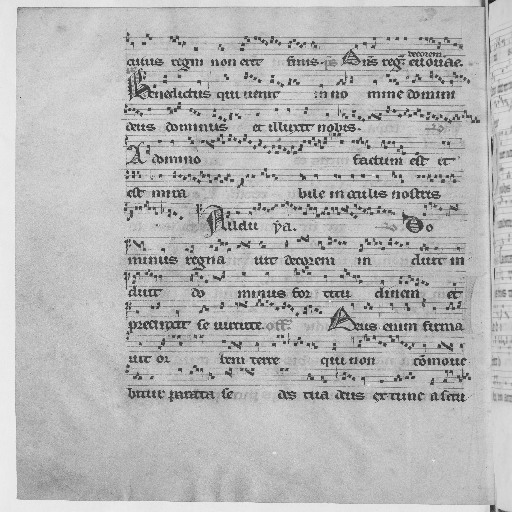 cuius regni non erit finis. ps Dns reg. decorem
Benedictus qui uenit in no mine domini
deus dominus et illuxit nobis.
A domino factum est et
est mira bile in oculis nostris
Do
minus regna uit decorem in duit in
duit do minus for titu dinem et
precinxit se uirtute. off. Deus enim firma
uit or bem terre qui non commoue
bitur parata se des tua deus ex tunc a secu